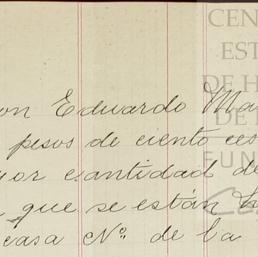 CEN
EST
DE H
DE
FUN
on Eduardo Ma
pesos de ciento ces
yor cantidad de
que se están h
casa Nº de la